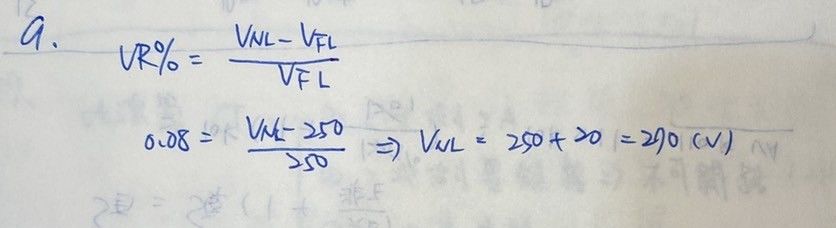 9.
VR% = (VNL - VFL) / VFL
0.08 = (VNL - 250) / 250 ⇒ VNL = 250 + 20 = 270 (V)